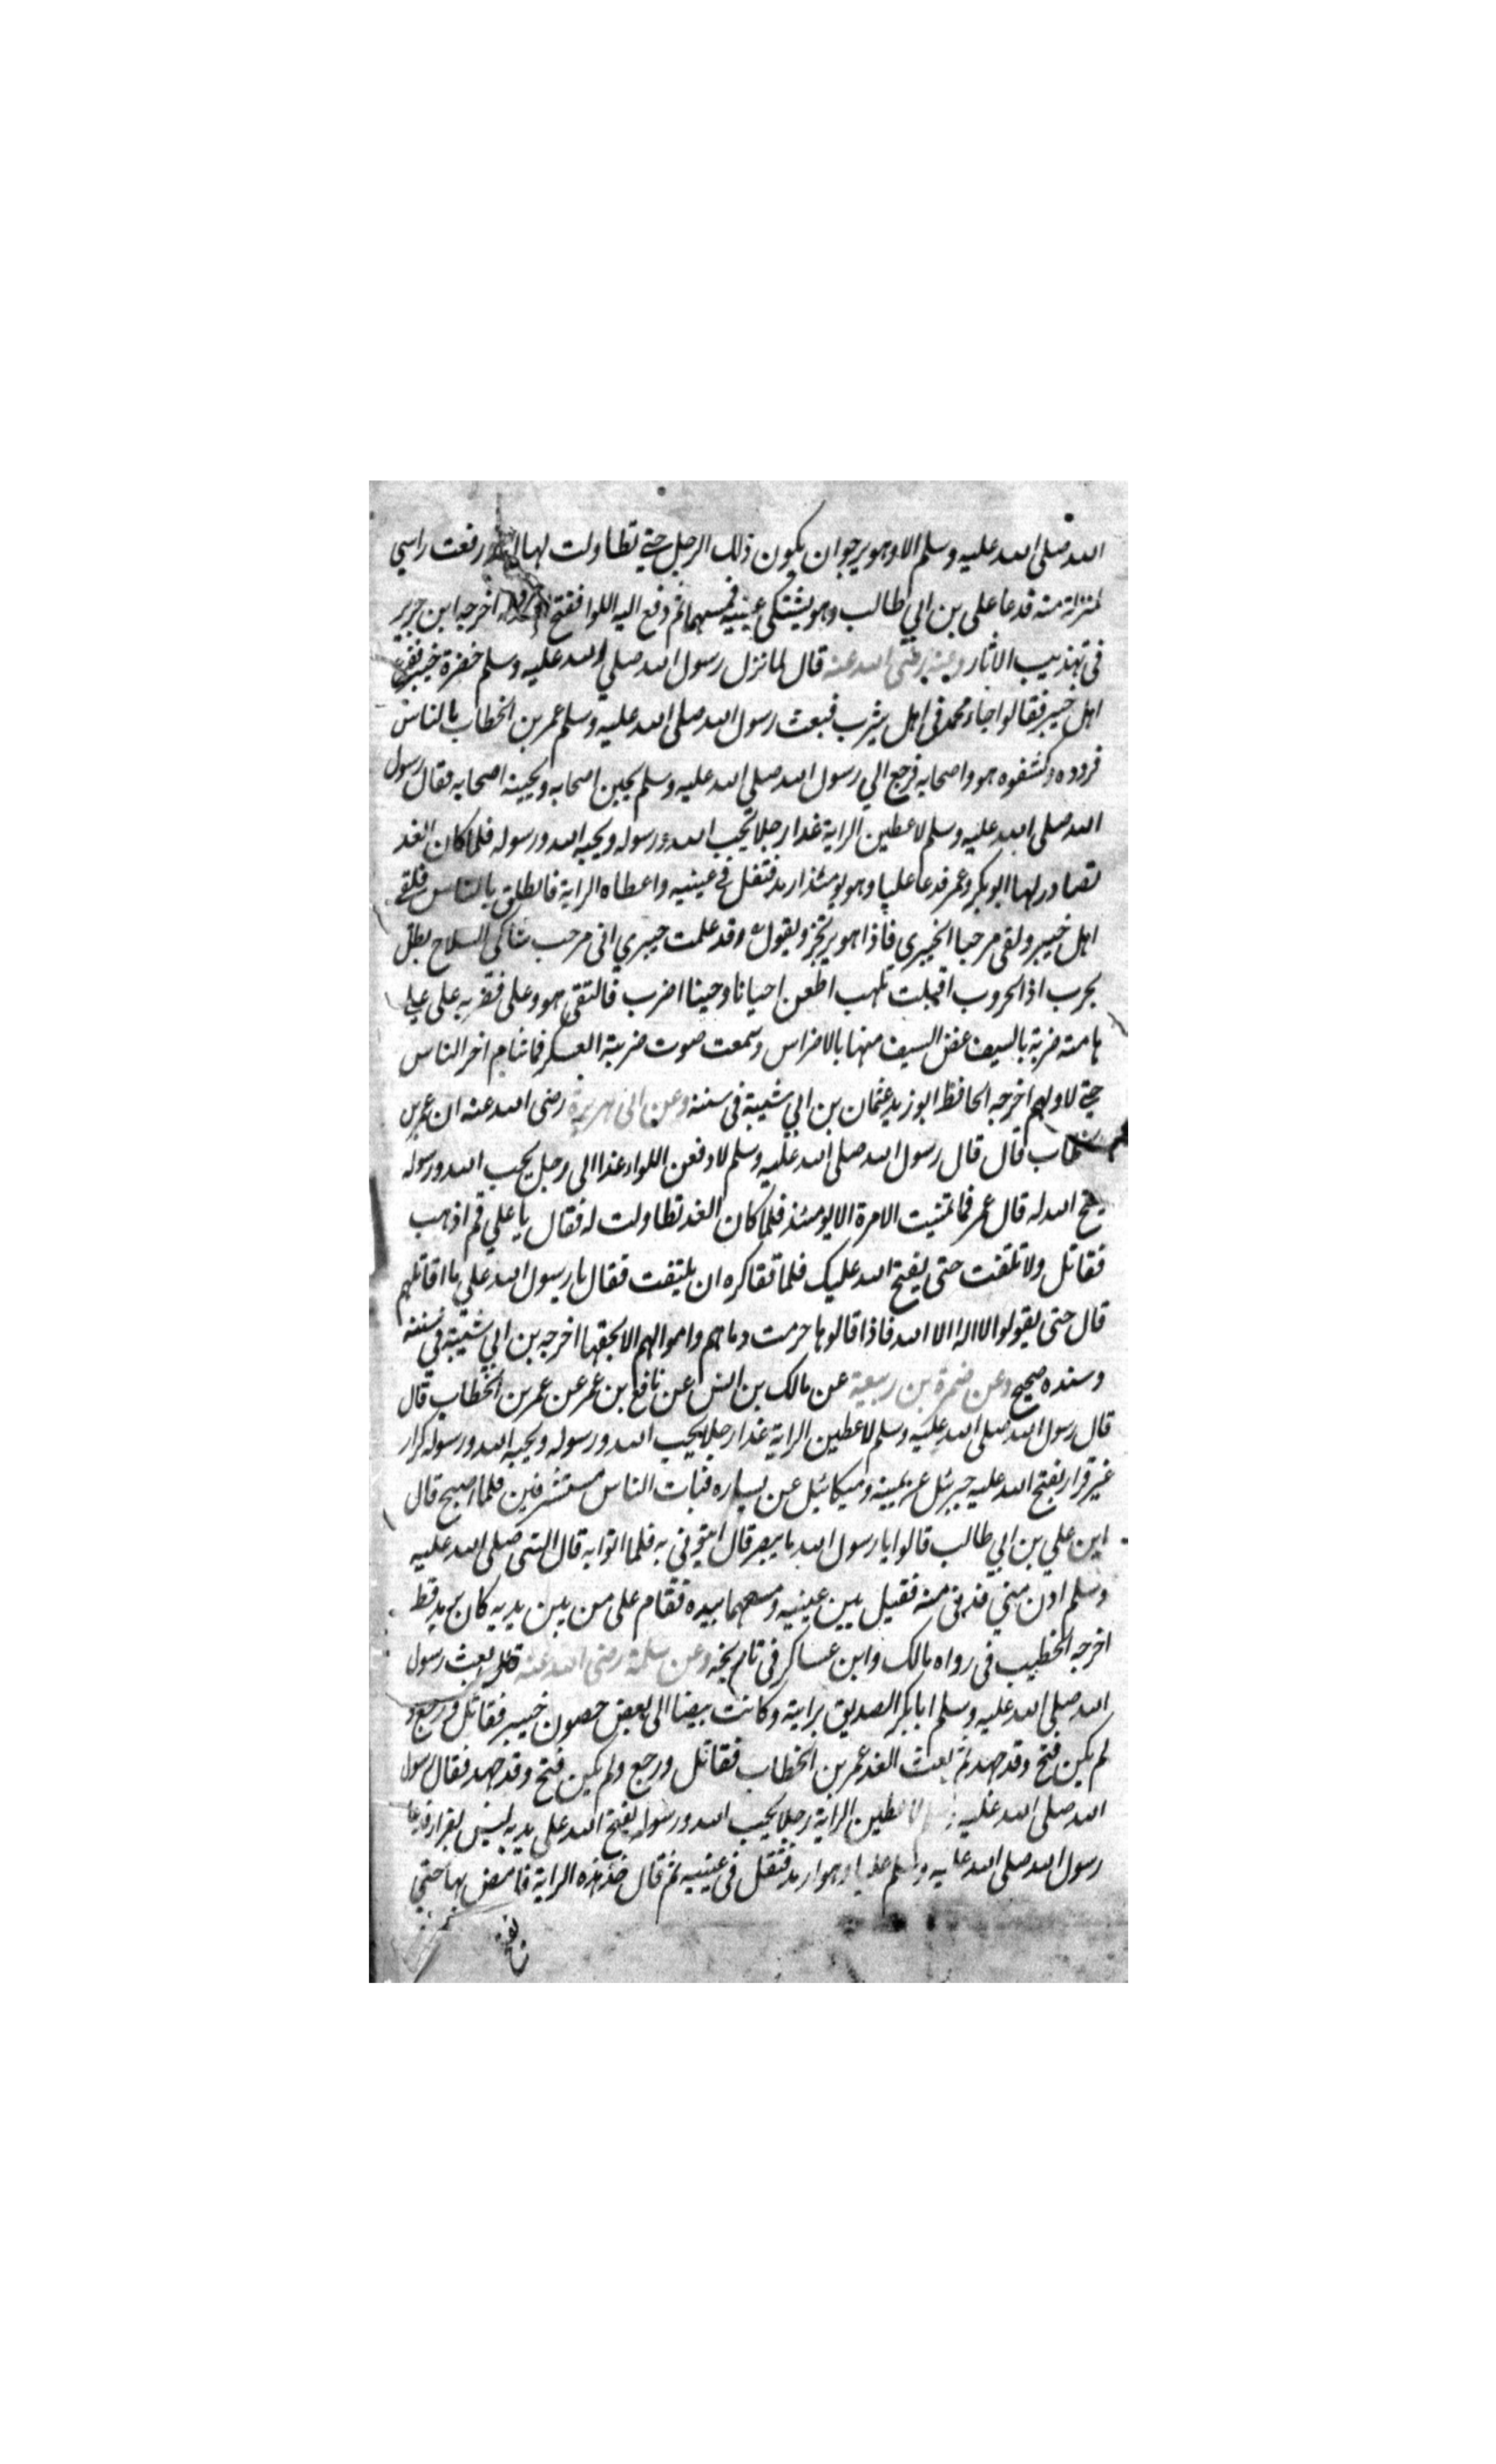 الله صلى الله عليه وسلم الا وهو يرجو ان يكون ذلك الرجل حتى تطاولت لها انا ورفعت راسي
لمنزلة منه فدعا على بن ابي طالب وهو يشتكى عينيه فمسهما ثم دفع اليه اللوا ففتح اخرجه ابن جرير
فى تهذيب الاثار وعنه رضى الله عنه قال لما نزل رسول الله صلي الله عليه وسلم حضرة خيبر فزع
اهل خيبر فقالوا جاء محمد فى اهل يثرب فبعث رسول الله صلى الله عليه وسلم عمر بن الخطاب بالناس
فردوه وكشفوه هو واصحابه فرجع الي رسول الله صلي الله عليه وسلم يجبن اصحابه ويجبنه اصحابه فقال رسول
الله صلى الله عليه وسلم لاعطين الراية غدا رجلا يحب الله ورسوله ويحبه الله ورسوله فلما كان الغد
تصادر لها ابو بكر وعمر فدعا عليا وهو يومئذ ارمد فتفل في عينيه واعطاه الراية فانطلق بالناس فلقى
اهل خيبر ولقى مرحبا الخيبري فاذا هو يرتجز ويقول قد علمت خيبري انى مرحب شاكى السلاح بطل
مجرب اذا الحروب اقبلت تلهب اطعن احيانا وحينا اضرب فالتقى هو وعلى فضربه على على
هامته ضربة بالسيف عض السيف منها بالاضراس وسمعت صوت ضربته العسكر فما تتام اخر الناس
حتى لاولهم اخرجه الحافظ ابو زيد عثمان بن ابي شيبة فى سننه وعن ابى هريرة رضى الله عنه ان عمر بن
الخطاب قال قال رسول الله صلى الله عليه وسلم لادفعن اللواء غدا الى رجل يحب الله ورسوله
يفتح الله له قال عمر فما تمنيت الامرة الا يومئذ فلما كان الغد تطاولت له فقال يا علي قم اذهب
فقاتل ولا تلتفت حتى يفتح الله عليك فلما قفا كره ان يلتفت فقال يا رسول الله علي ما اقاتلهم
قال حتى يقولوا لا اله الا الله فاذا قالوها حرمت دماهم واموالهم الا بحقها اخرجه بن ابي شيبة في سننه
وسنده صحيح وعن ضمرة بن ربيعة عن مالك بن انس عن نافع بن عمر عن عمر بن الخطاب قال
قال رسول الله صلى الله عليه وسلم لاعطين الراية غدا رجلا يحب الله ورسوله ويحبه الله ورسوله كرار
غير فرار يفتح الله عليه جبرئل عن يمينه وميكائيل عن يساره فبات الناس مستشرفين فلما اصبح قال
اين علي بن ابي طالب قالوا يا رسول الله ما يبصر قال ايتوني به فلما اتوا به قال النبى صلى الله عليه
وسلم ادن مني فدنى منه فقيل بين عينيه ومسهما بيده فقام على من بين يديه كان لم يرمد قط
اخرجه الخطيب فى رواه مالك وابن عساكر فى تاريخه وعن سلمة رضى الله عنه قال بعث رسول
الله صلي الله عليه وسلم ابا بكر الصديق برايته وكانت بيضا الى بعض حصون خيبر فقاتل ورجع و
لم يكن فتح وقد جهد ثم بعث الغد عمر بن الخطاب فقاتل ورجع ولم يكن فتح وقد جهد فقال رسول
الله صلى الله عليه وسلم لاعطين الراية رجلا يحب الله ورسوله يفتح الله على يديه ليس بفرار فدعا
رسول الله صلى الله عليه وسلم عليا وهو ارمد فتفل فى عينيه ثم قال خذ هذه الراية فامض بها حتى